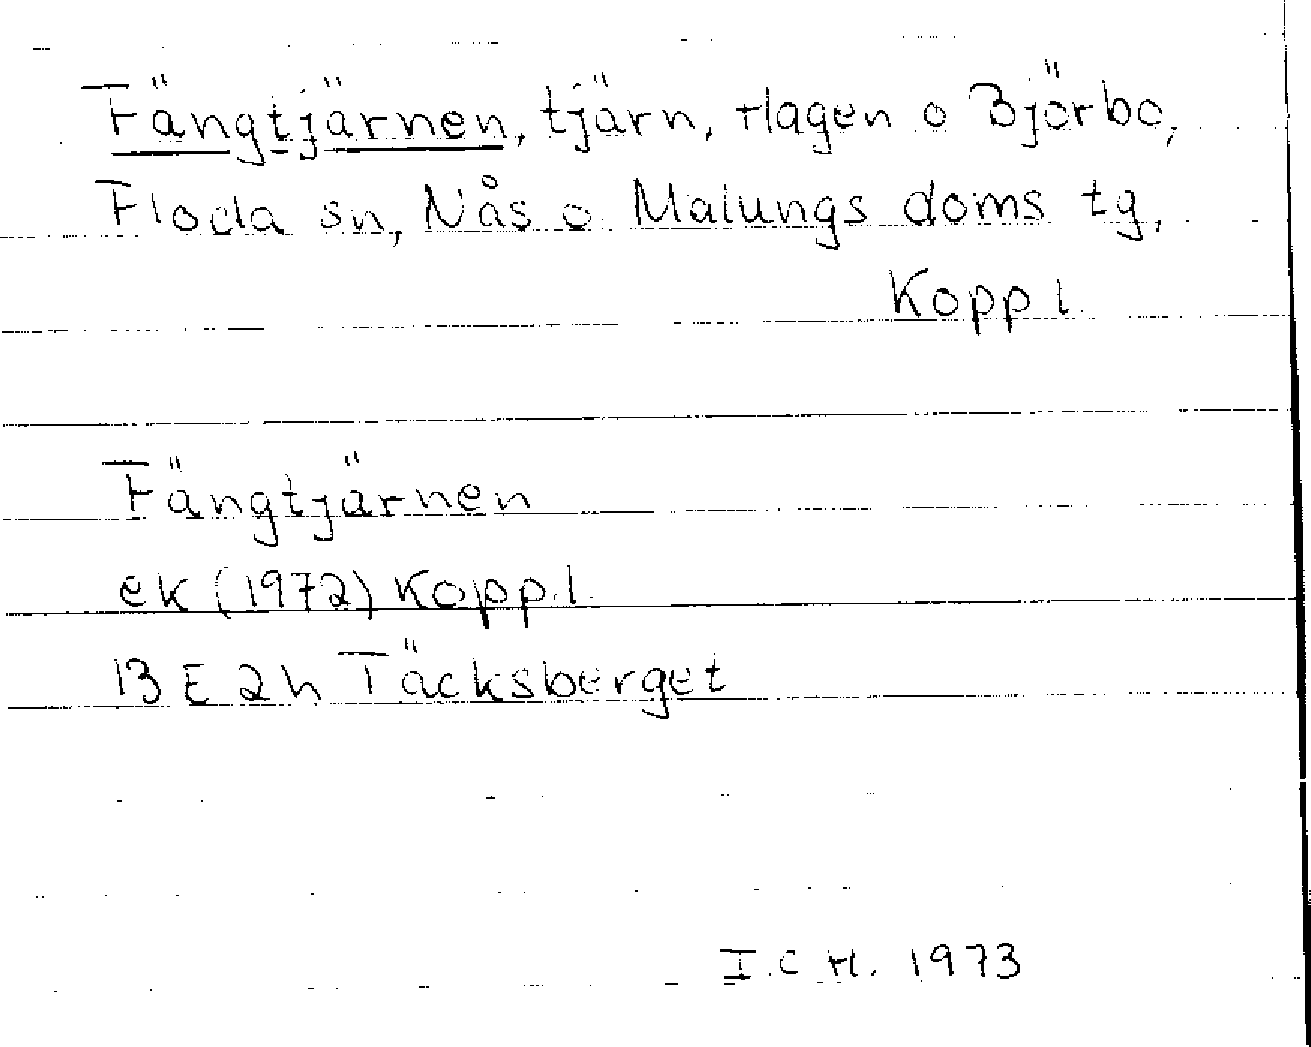 Fängtjärnen, tjärn, Hagen o Björbo,
Floda sn, Nås o Malungs doms tg,
Kopp l.
Fängtjärnen
ek (1972) Kopp. l.
13 E 2h Täcksberget
I.C H. 1973